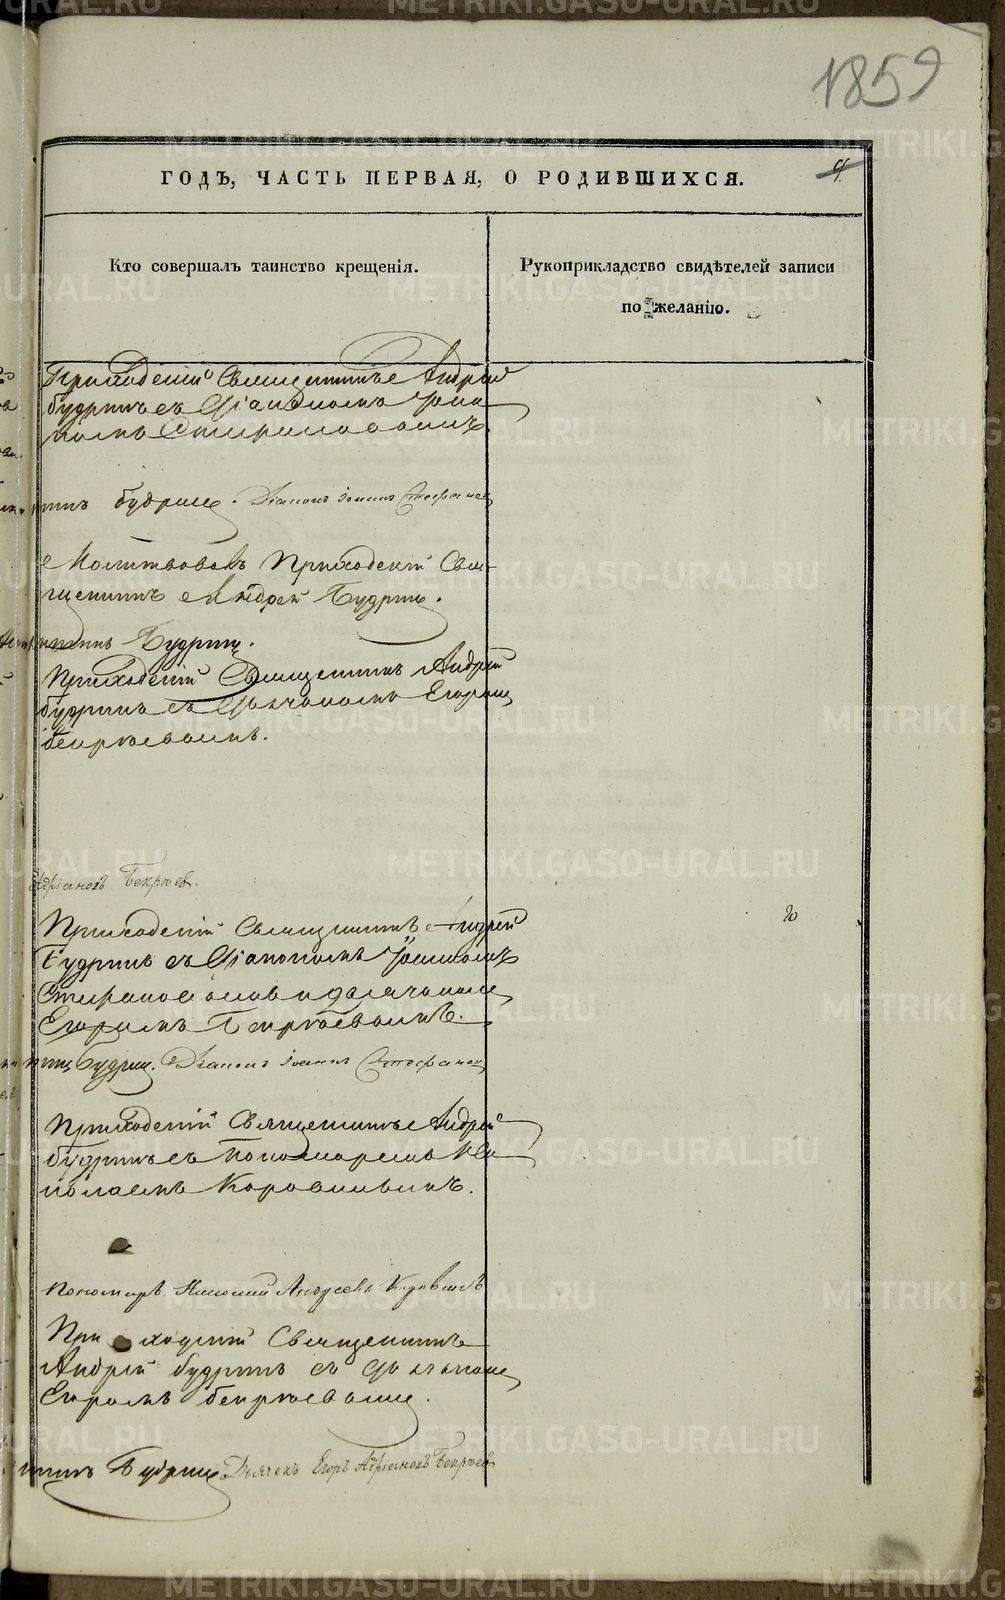 1859
4.
ГОДЪ, ЧАСТЬ ПЕРВАЯ, О РОДИВШИХСЯ.
Кто совершалъ таинство крещенія.
Рукоприкладство свидѣтелей записи
по желанію.
Приходскій Священникъ Андрей
Будринъ съ Діакономъ Іоан
номъ Стефановымъ
Будринъ. Діаконъ Іоаннъ Стефановъ
Молитвовалъ Приходскій Свя-
щенникъ Андрей Будринъ.
Будринъ.
Приходскій Священникъ Андрей
Будринъ съ Дьячкомъ Егоромъ
Бекряевымъ.
Адріановъ Бекряевъ.
Приходскій Священникъ Андрей
Будринъ съ Діакономъ Іоанномъ
Стефановымъ и дьячкомъ
Егоромъ Бекряевымъ.
Будринъ. Діаконъ Іоаннъ Стефановъ
Приходскій Священникъ Андрей
Будринъ съ Пономаремъ Ни
колаемъ Коровинымъ.
Пономарь Николай Андреевъ Коровинъ
Приходскій Священникъ
Андрей Будринъ съ Дьячкомъ
Егоромъ Бекряевымъ.
Будринъ Дьячекъ Егоръ Адріановъ Бекряевъ
METRIKI.GASO-URAL.RU